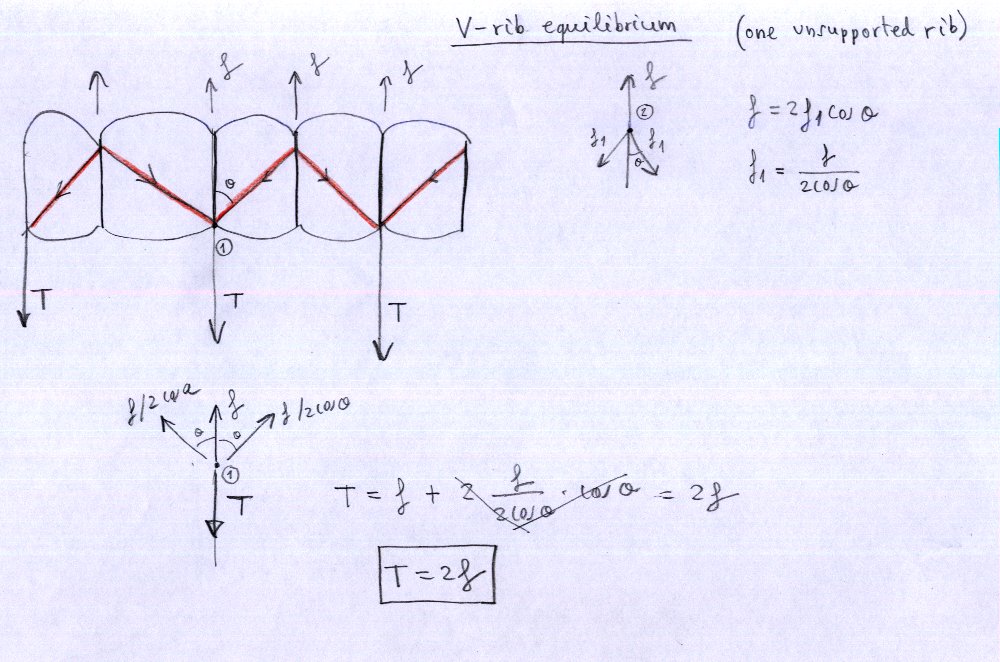 V-rib equilibrium (one unsupported rib)
f f f
θ
①
T T T
f
②
f₁ f₁
θ
f = 2f₁cosθ
f₁ = f / 2cosθ
f/2cosθ f f/2cosθ
θ θ
①
T
T = f + 2 f/2cosθ · cosθ = 2f
T = 2f